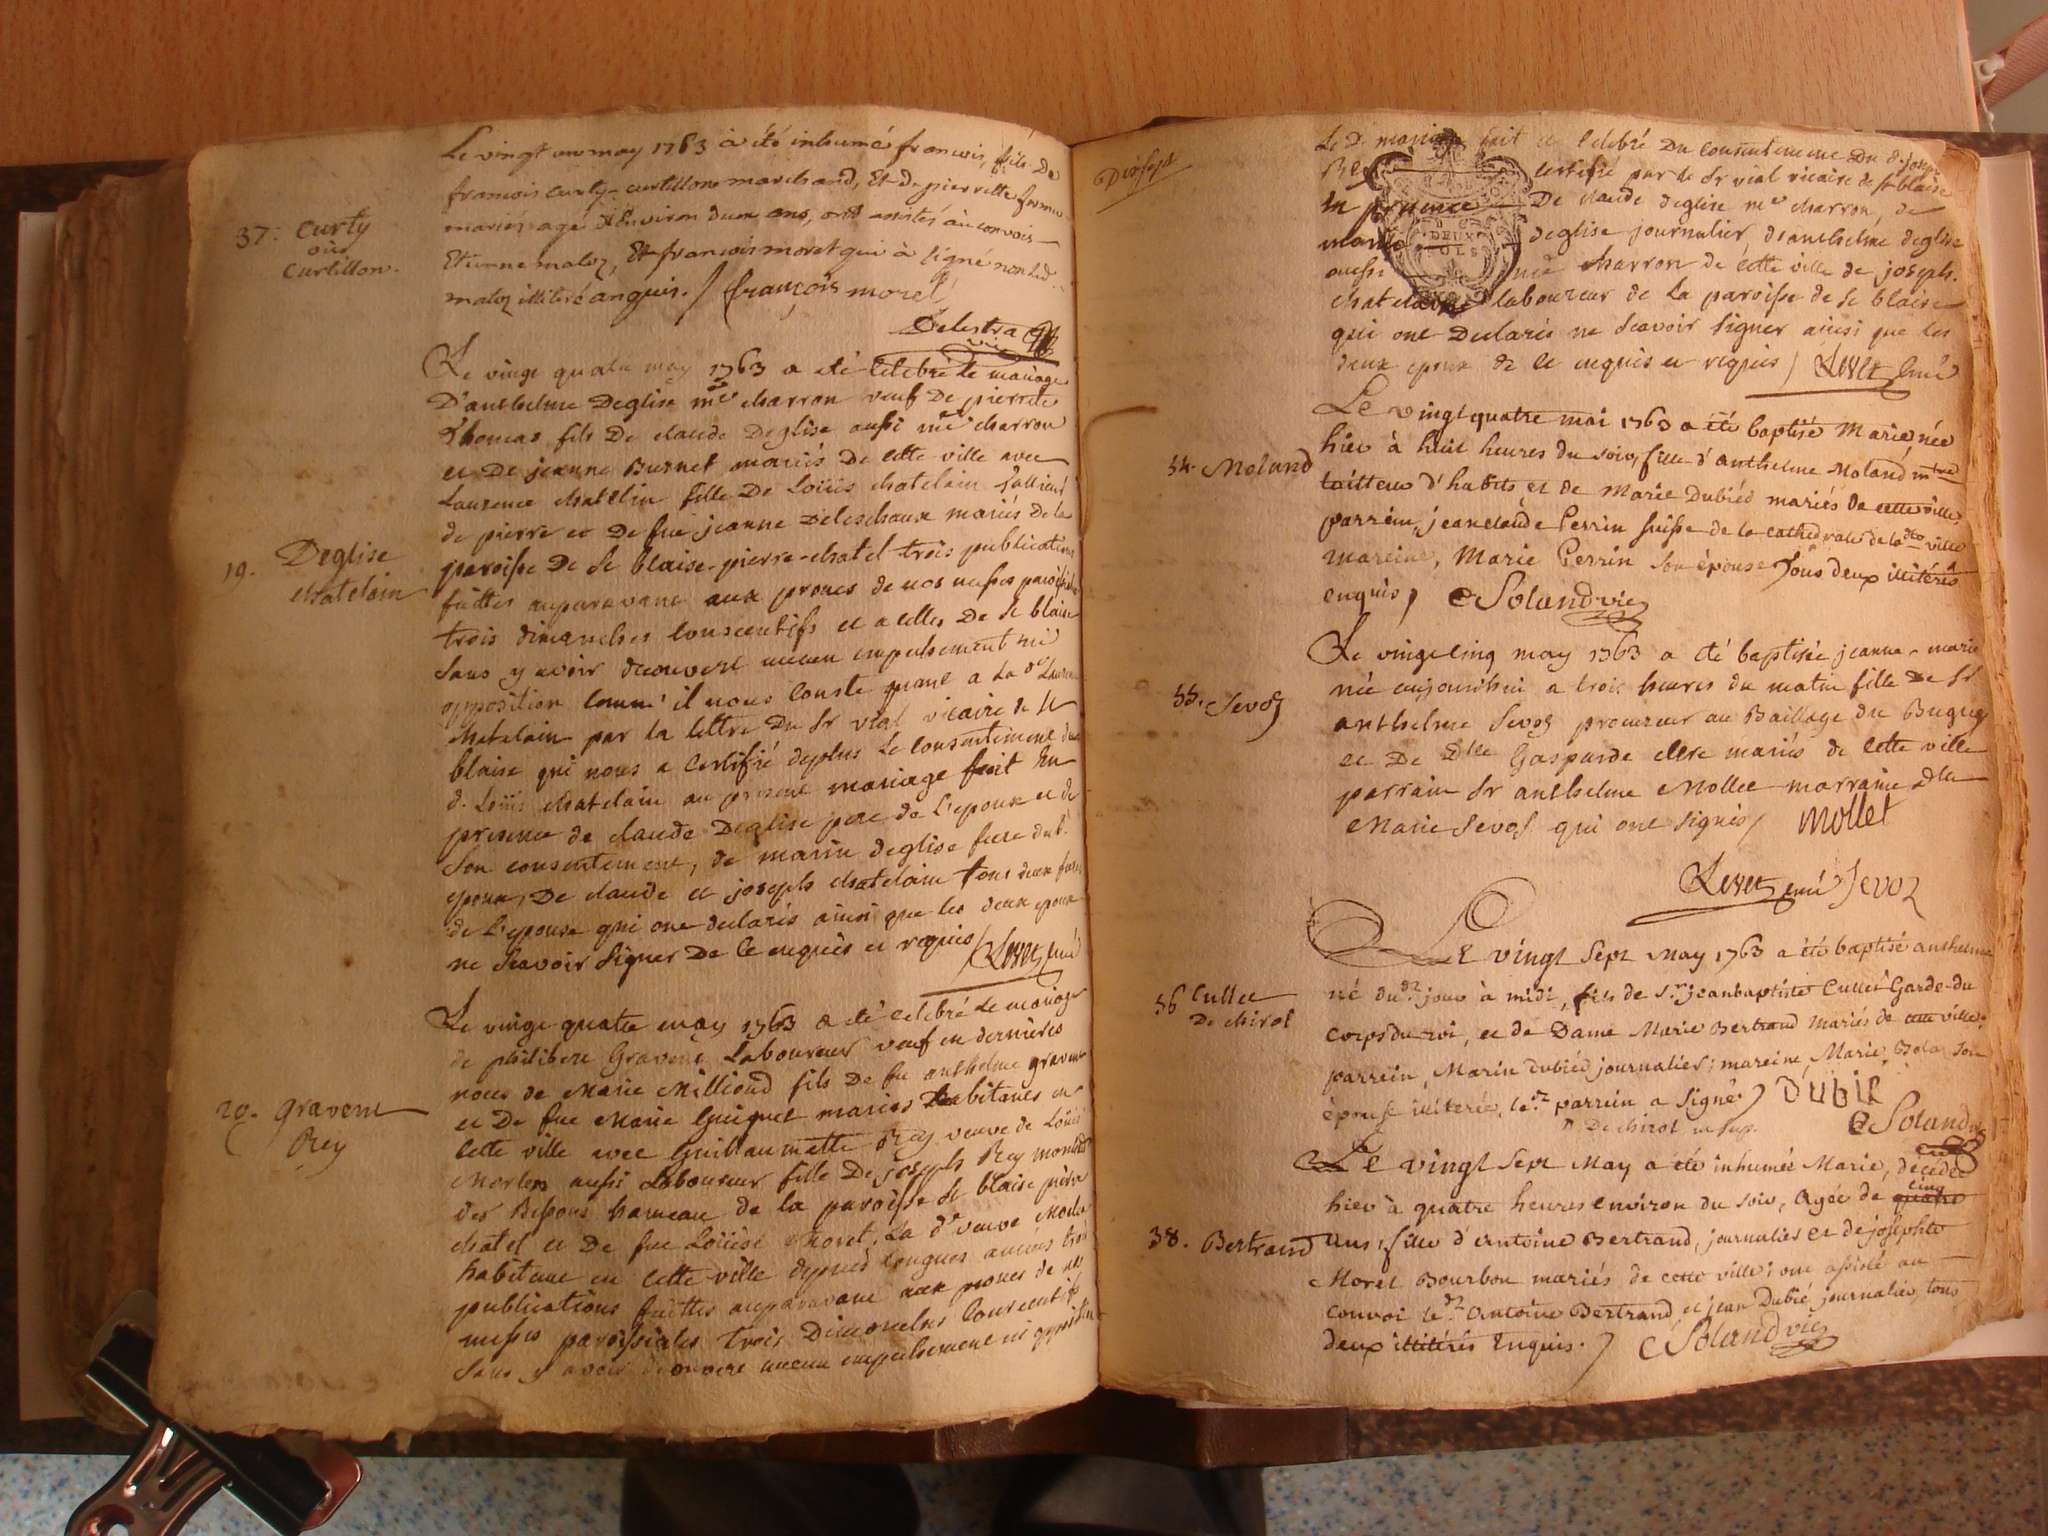 Le vingt un may 1763 à été inhumé francois, fils De
francois curty-curtillon marchand, Et de pierrette
37. curty
oùi
curtillon.
mariés agé d'Environ deux ans, ont assistés au convois
Etienne maloz, Et francois moret qui à signé non led.
maloz illiteré anquis. / françois moret
Delestra vic
Le vingt quatre may 1763 a été celebré le mariage
D'anthelme Deglise me charron veuf De pierrete
Thomas fils De claude Deglise aussi me charron
et De jeanne Burnet mariés De cette ville avec
Laurence chatelin fille De Loüis chatelain
de pierre et De fue jeanne Deleschaux mariés De la
19. Deglise
chatelain
paroisse De St blaise-pierre-chatel trois publications
faittes auparavant aux prones de nos messes paroissiales
trois dimanches consecutifs et a celles De St blaise
sans y avoir decouvert aucun empechement ni
opposition comme il nous conste quant a La de Laurence
chatelain par la lettre Du Sr vial vicaire de St
blaise qui nous a certifié deplus Le consentement du
d. Loüis chatelain au present mariage fait En
presence de claude Deglise pere de L'epoux et de
son consentement, de marin deglise frere dud.
epoux, De claude et joseph chatelain tous deux freres
de L'epouse qui ont declarés ainsi que les deux epoux
ne sçavoir signer De ce enquis et requis / Levet curé
Le vingt quatre may 1763 a été celebré Le mariage
de philibert Gravent Laboureur veuf en dernieres
noces de Marie Milliond fils De fu anthelme gravent
20. gravent
Rey
et De fue Marie Guiguet mariés habitants en
cette ville avec Guillaumette Rey veuve de Loüis
Morlen aussi Laboureur fille De joseph Rey
des Bessons hameau de la paroisse St blaise pierre
chatel et De fue Loüise Moret, La de veuve
habitant en cette ville depuis Longues années trois
publications faittes auparavant aux prones de nos
messes paroissiales trois Dimanches consecutifs
sans y avoir decouvert aucun empechement ni opposition
Dixsept
Le D. mariage fait et celebré Du consentement Du d. joseph
Rey certifié par le Sr vial vicaire de St blaise
En presence De claude deglise me charron, de
DEUX
SOLS
marin deglise journalier, d'anthelme deglise
aussi me charron de cette ville de joseph
chatelain laboureur de La paroisse de St blaise
qui ont Declarés ne sçavoir signer ainsi que les
deux epoux de ce enquis et requis / Levet curé
Le vingt quatre mai 1763 a été baptisé Marie née
hier à huit heures du soir, fille d'anthelme Moland mtre
54. Moland
taitteur d'habits, et de Marie Dubiéd mariés de cette ville.
parrein, jean claude Perrin suisse de la cathedrale de la dte ville
mareine, Marie Perrin son épouse tous deux illitérés
enquis / Soland vic
Le vingt cinq may 1763 a été baptisée jeanne-marie
née aujourd'hui a trois heures du matin fille De Sr
55. Sevoz
anthelme Sevoz procureur au Baillage du Bugey
et De Dlle Gasparde clerc mariés de cette ville
parrain Sr anthelme Mollet marraine Dlle
Marie Sevoz qui ont signés / mollet
Levet curé Sevoz
Le vingt sept May 1763 a été baptisé anthelme
né dudt jour à midi, fils de Sr jean baptiste Cullet Garde-du
56 Cullet
De chirol
corps du roi, et de Dame Marie Bertrand Mariés de cette ville.
parrein, Marin dubiéd journalier; mareine, Marie Bolan son
épouse illiterée, ledt parrein a signé. / DUBIE
De chirol Soland vic
Le vingt sept May a été inhumée Marie, décédée
hier à quatre heures environ du soir, Agée de quatre cinq
38. Bertrand
ans, fille d'Antoine Bertrand, journalier et de josephte
Moret Bourbon mariés de cette ville; ont assisté au
convoi ledt Antoine Bertrand, et jean Dubié journalier, tous
deux illitérés Enquis. / Soland vic